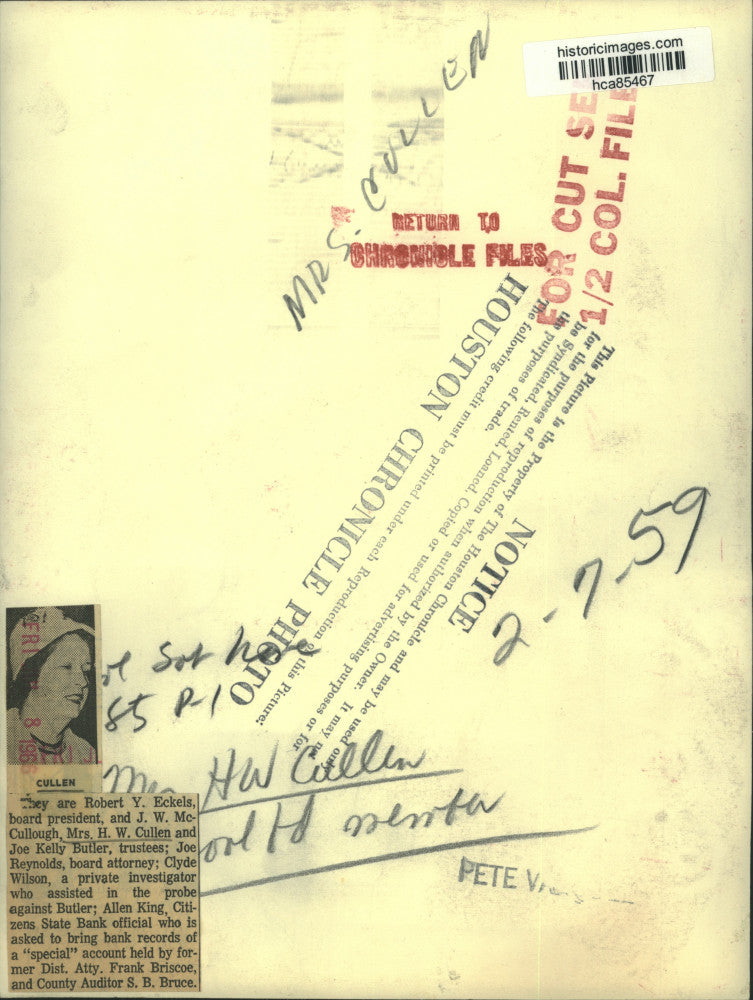 historicimages.com
hca85467
MRS. CULLEN
RETURN TO
CHRONICLE FILES
FOR CUT SE
1/2 COL. FILE
HOUSTON CHRONICLE PHOTO
The following credit must be printed under each Reproduction of this Picture:
NOTICE
This Picture is the Property of The Houston Chronicle and may be used only
for the purposes of reproduction when authorized by the Owner. It may not
be Syndicated, Rented, Loaned, Copied or used for advertising purposes or for
the purposes of trade.
2-7-59
85 P-1
Mrs H W Cullen
member
PETE
CULLEN
They are Robert Y. Eckels,
board president, and J. W. Mc-
Cullough, Mrs. H. W. Cullen and
Joe Kelly Butler, trustees; Joe
Reynolds, board attorney; Clyde
Wilson, a private investigator
who assisted in the probe
against Butler; Allen King, Citi-
zens State Bank official who is
asked to bring bank records of
a "special" account held by for-
mer Dist. Atty. Frank Briscoe,
and County Auditor S. B. Bruce.